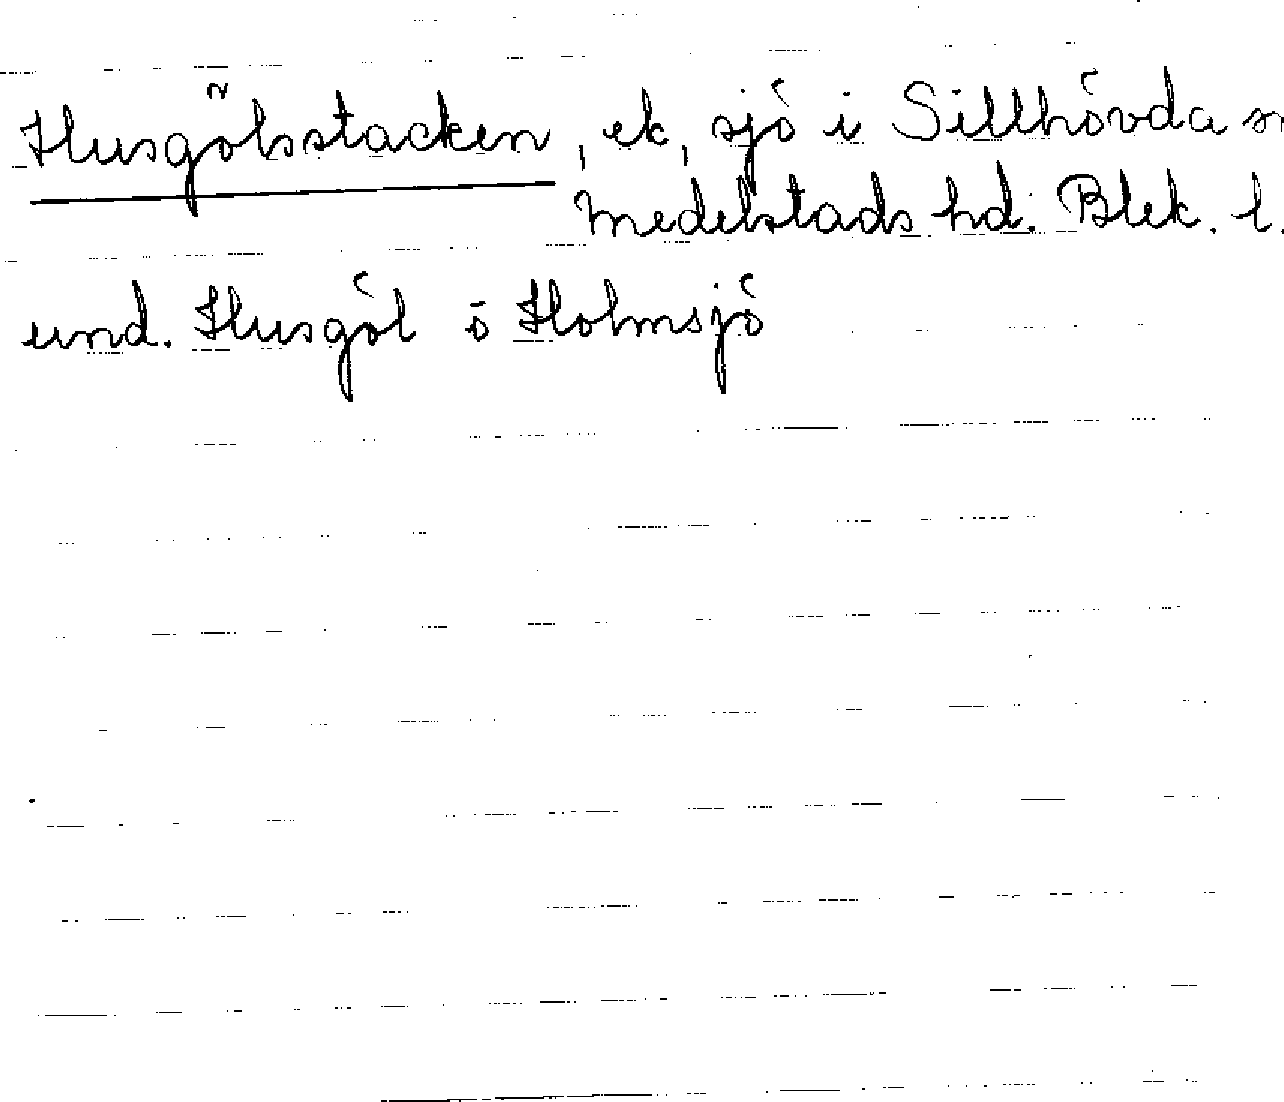 Husgölsstacken, ek, sjö i Sillhövda
Medelstads hd. Blek. l.
und. Husgöl o Holmsjö